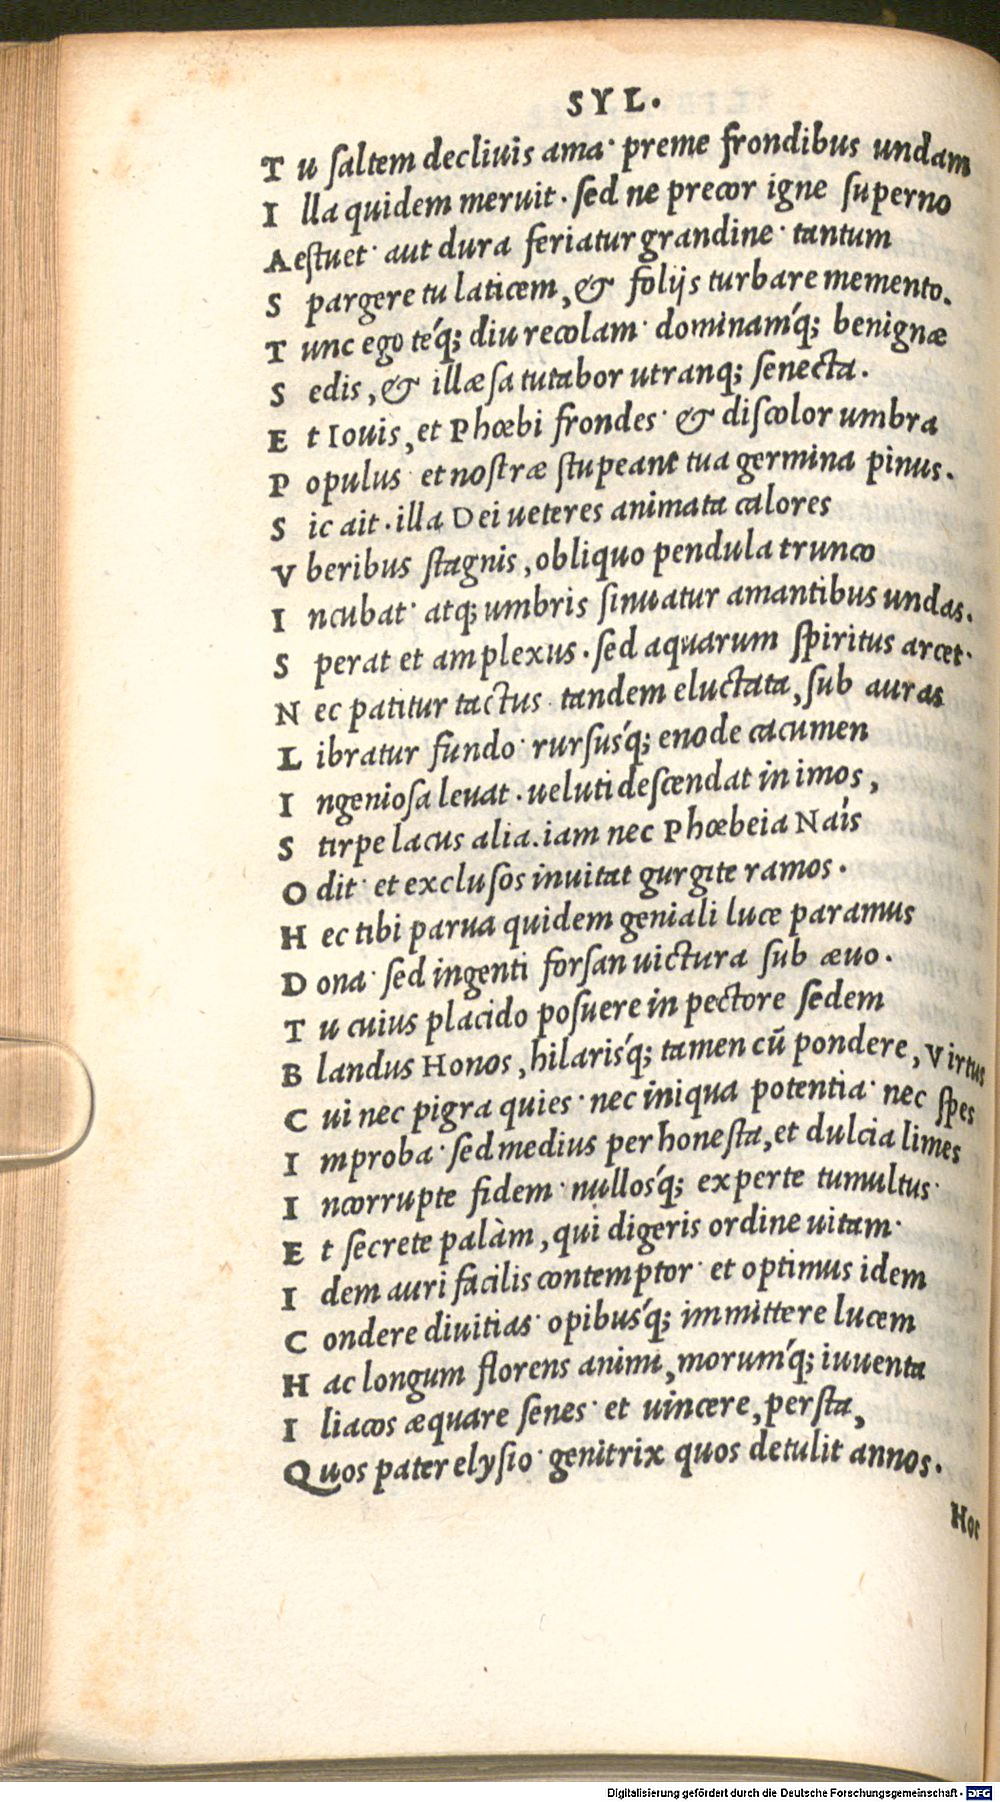 SYL.
T u saltem decliuis ama· preme frondibus undam
I lla quidem meruit. sed ne precor igne superno
A estuet· aut dura feriatur grandine· tantum
S pargere tu laticem, & folijs turbare memento.
T unc ego téq; diu recolam· dominamq́; benignæ
S edis, & illæsa tutabor utranq; senecta.
E t Iouis, et Phœbi frondes· & discolor umbra
P opulus· et nostræ stupeant tua germina pinus.
S ic ait. illa Dei ueteres animata calores
V beribus stagnis, obliquo pendula trunco
I ncubat· atq; umbris sinuatur amantibus undas.
S perat et amplexus. sed aquarum spiritus arcet·
N ec patitur tactus· tandem eluctata, sub auras
L ibratur fundo· rursusq́; enode cacumen
I ngeniosa leuat. ueluti descendat in imos,
S tirpe lacus alia. iam nec Phœbeia Naís
O dit· et exclusos inuitat gurgite ramos.
H ec tibi parua quidem geniali luce paramus
D ona· sed ingenti forsan uictura sub æuo.
T u cuius placido posuere in pectore sedem
B landus Honos, hilarisq́; tamen cū pondere, Virtus
C ui nec pigra quies· nec iniqua potentia· nec spes
I mproba· sed medius per honesta, et dulcia limes
I ncorrupte fidem· nullosq́; experte tumultus·
E t secrete palàm, qui digeris ordine uitam·
I dem auri facilis contemptor· et optimus idem
C ondere diuitias· opibusq́; immittere lucem
H ac longum florens animi, morumq́; iuuenta
I liacos æquare senes· et uincere, persta,
Q uos pater elysio· genitrix quos detulit annos.
Hoc
Digitalisierung gefördert durch die Deutsche Forschungsgemeinschaft - DFG